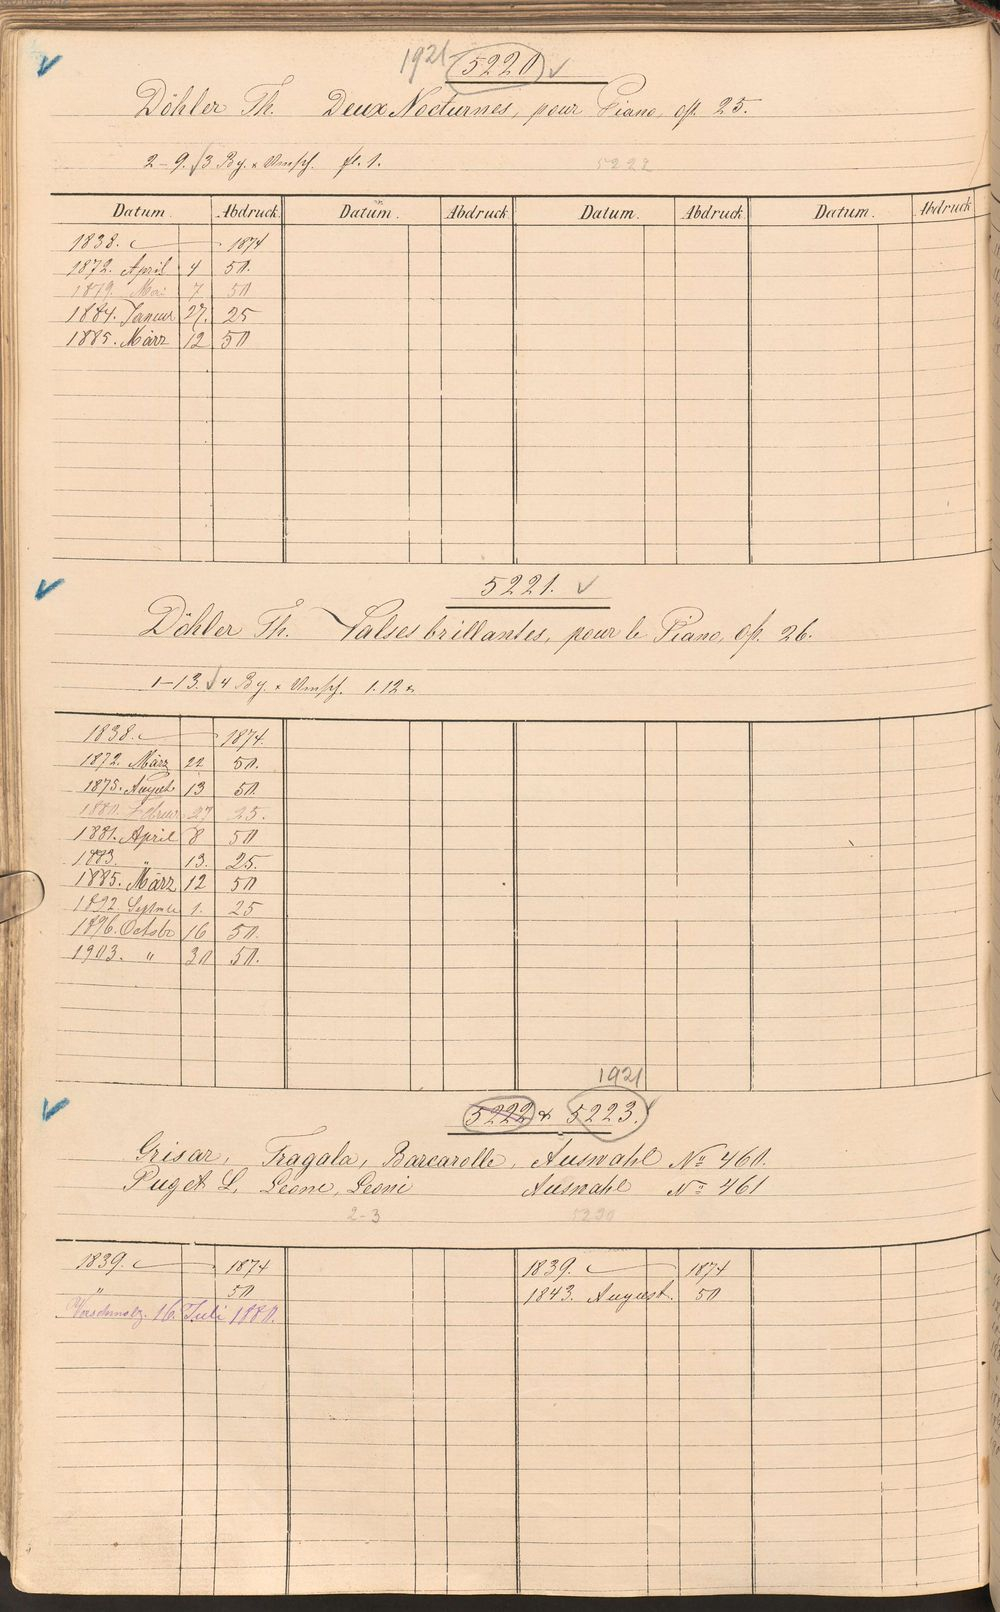 1921 5220
Döhler Th. Deux Nocturnes, pour Piano, op. 25.
2-9. 3 Bg. & Umsch. fl. 1. 5222
Datum. Abdruck. Datum. Abdruck Datum. Abdruck Datum. Abdruck
1838. 1874
1872. April 4 50.
1879 Mai 7 50
1884. Januar 27. 25
1885. März 12 50
5221.
Döhler Th. Valses brillantes, pour le Piano, op. 26.
1-13. 4 Bg. & Umsch. 1.12
1838. 1874.
1872. März 22 50.
1875. August 13 50.
1880. Februar 27 25.
1881. April 8 50
1883. " 13. 25.
1885. März 12 50
1892. Septmbr 1. 25
1896. Octobr 16 50.
1903. " 30 50.
1921
5222 & 5223.
Grisar, Fragala, Barcarolle, Auswahl No 460.
Puget L. Leone, Leoni Auswahl No 461
2-3 5230
1839. 1874 1839. 1874
" 50 1843. August. 50
Verschmolz. 16. Juli 1880.